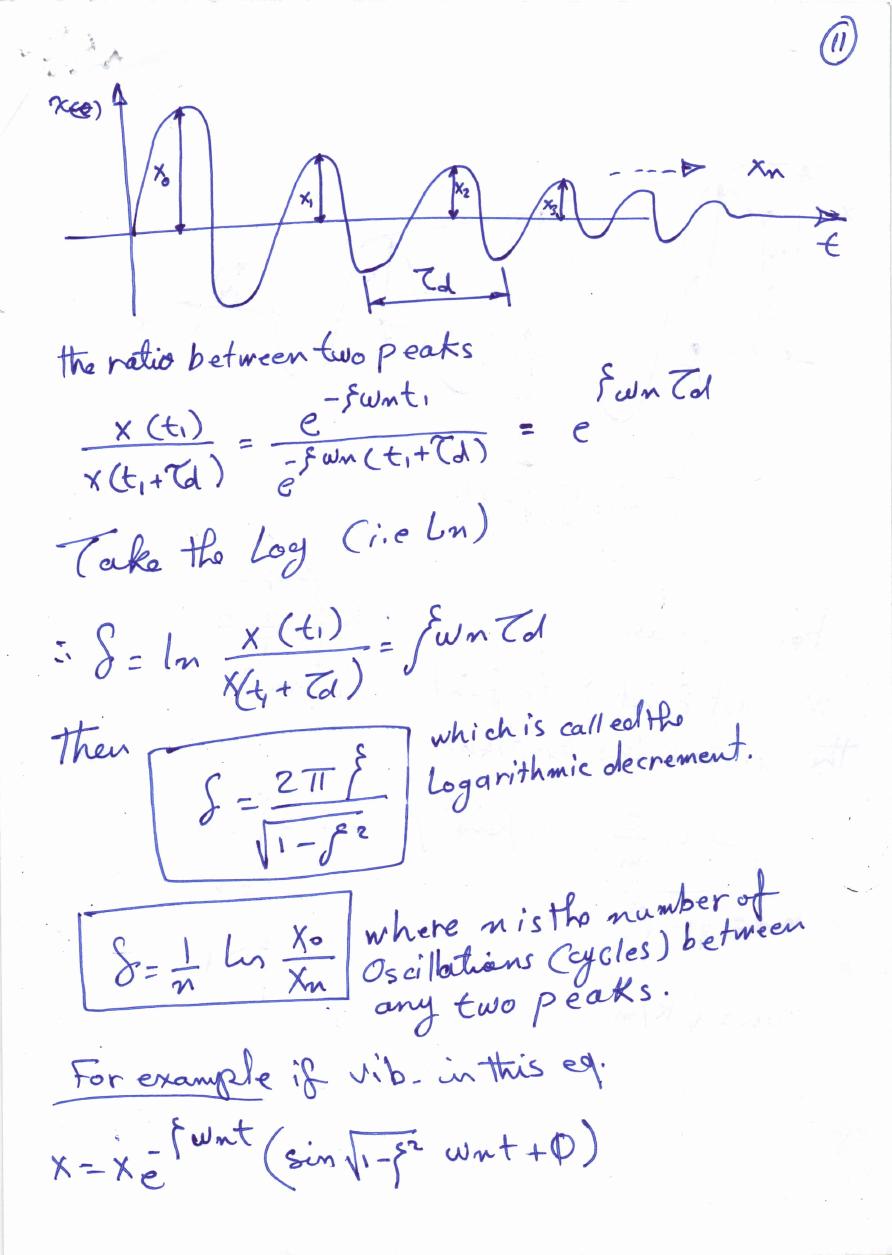 11
x(t)
x₀
x₁
x₂
x₃
xₙ
t
τd
the ratio between two peaks
x(t₁) / x(t₁+τd) = e^(-ξωnt₁) / e^(-ξωn(t₁+τd)) = e^(ξωnτd)
Take the Log (i.e Ln)
∴ δ = ln x(t₁) / x(t₁+τd) = ξωnτd
Then δ = 2πξ / √(1-ξ²) which is called the
Logarithmic decrement.
δ = 1/n ln x₀/xₙ where n is the number of
Oscillations (cycles) between
any two peaks.
For example if vib. in this eq.
x = x e^(-ξωnt) (sin √(1-ξ²) ωnt + Φ)